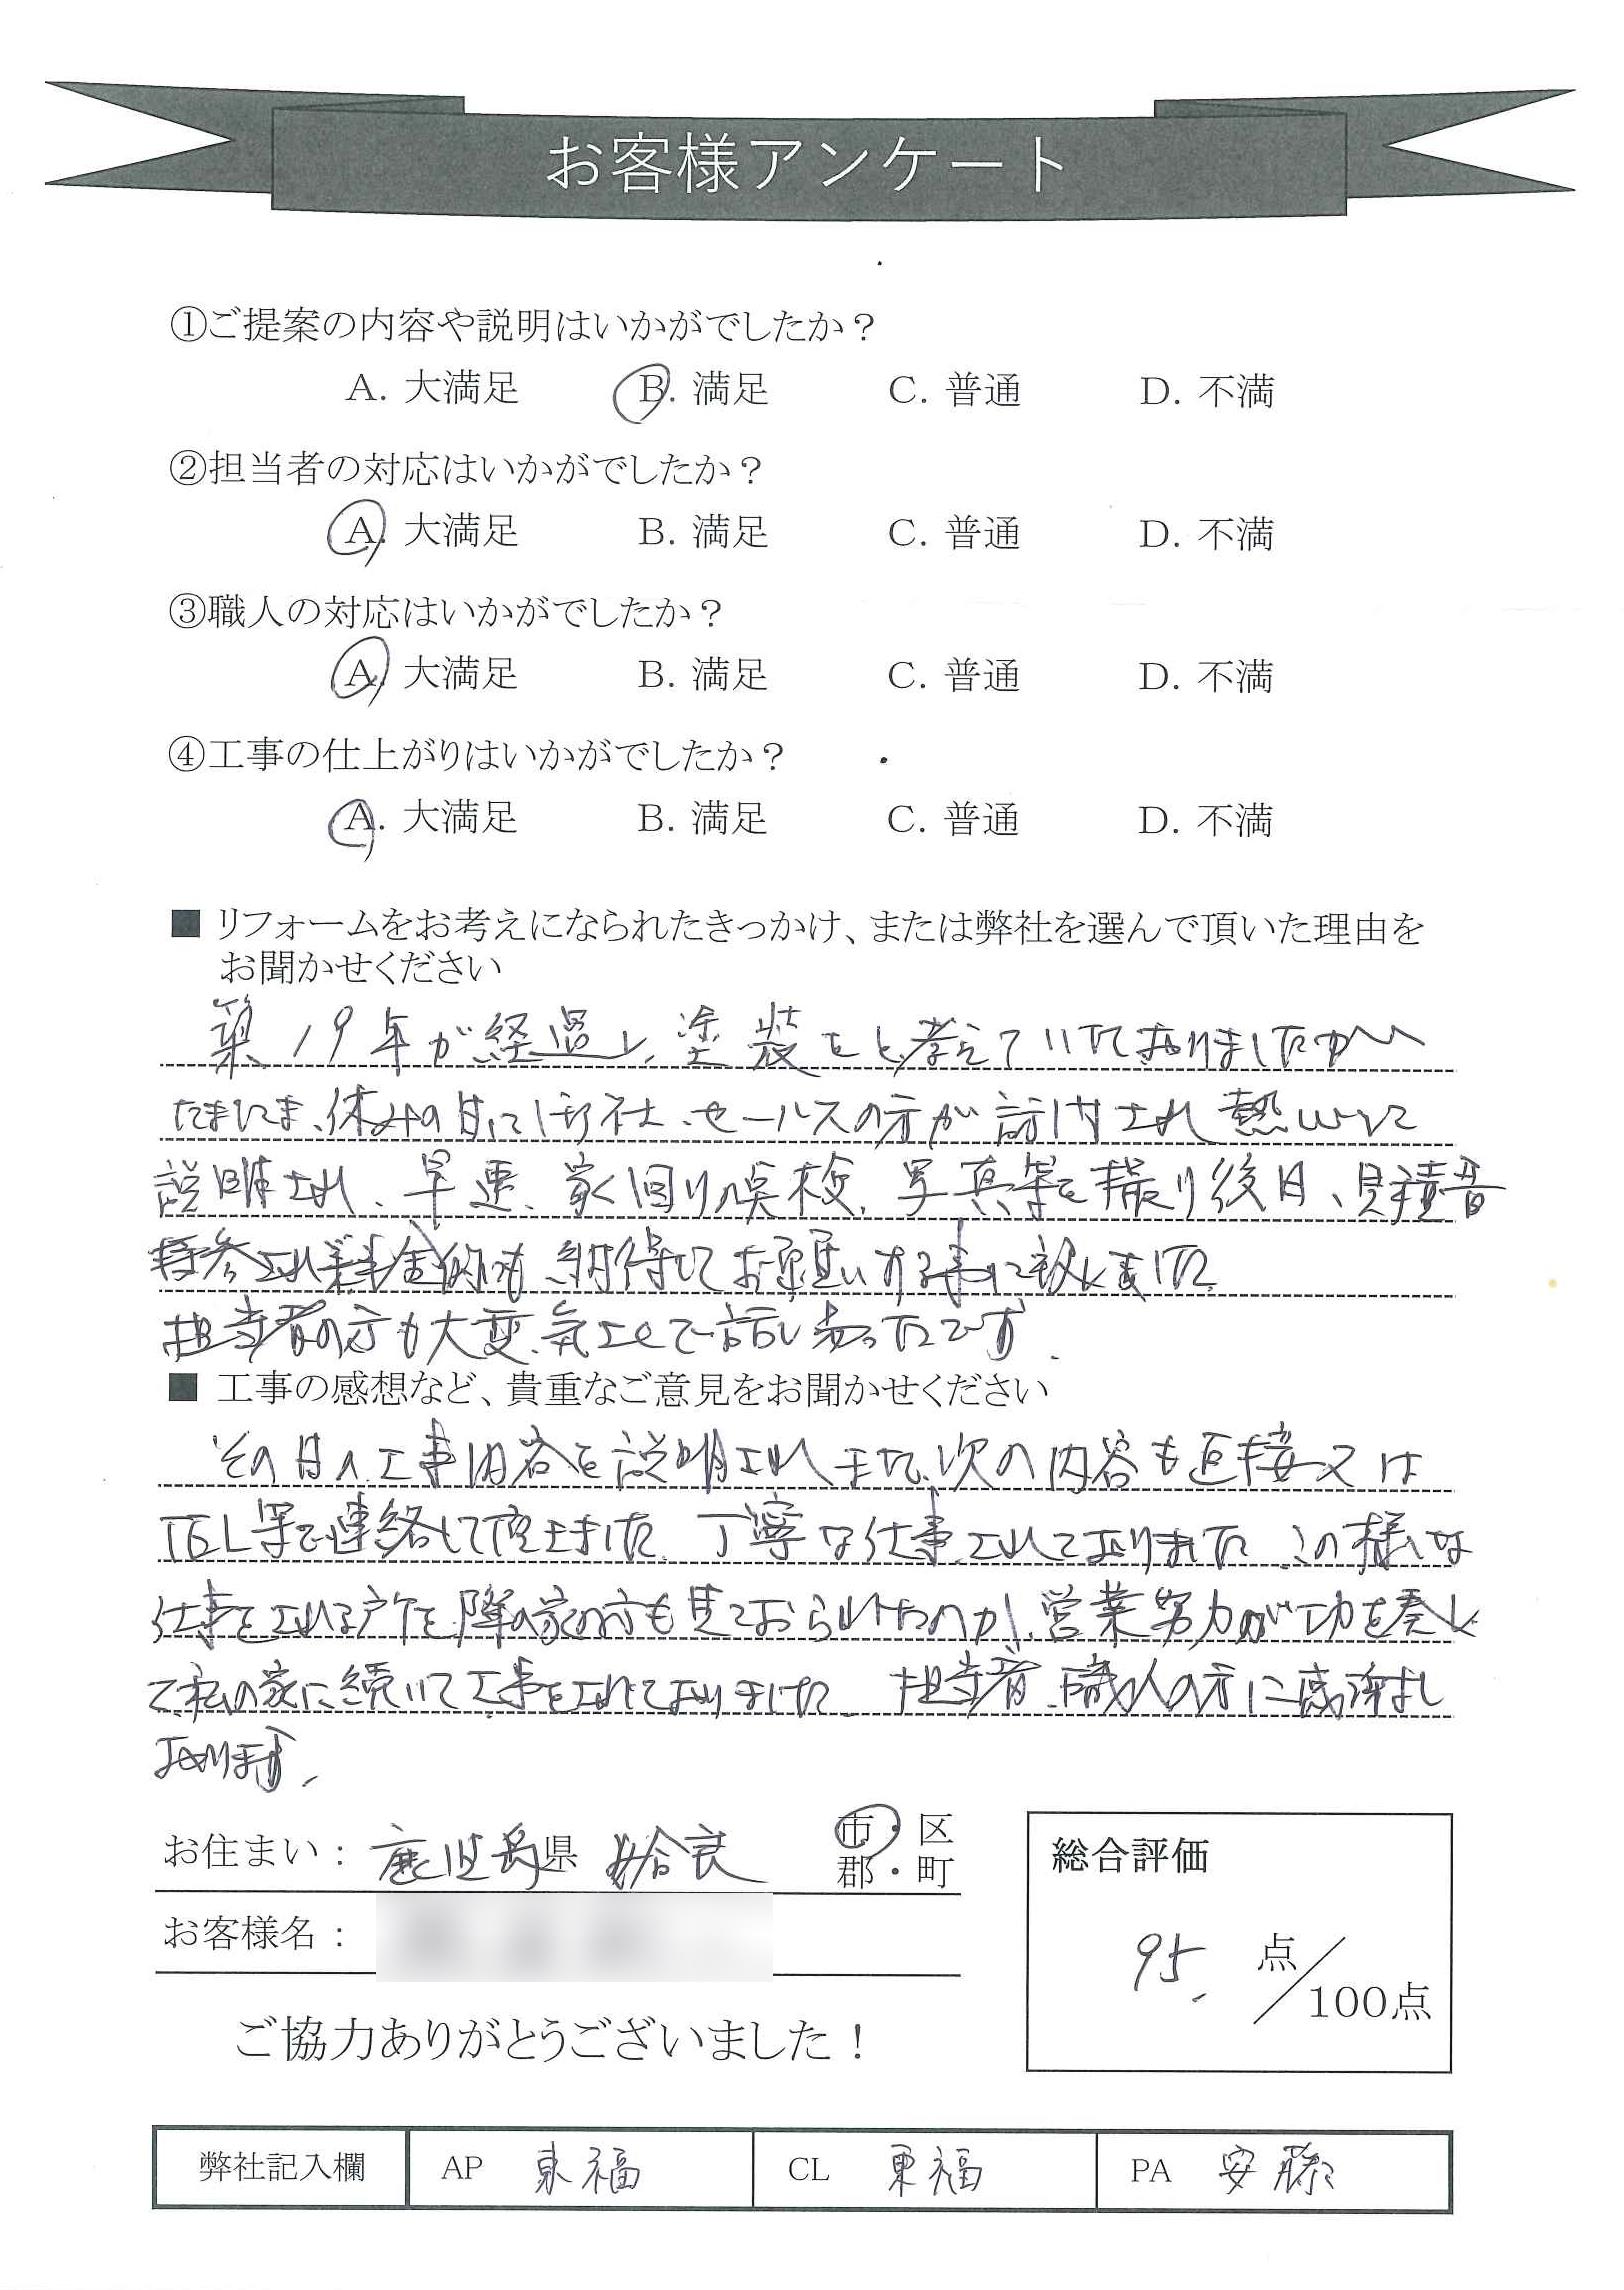 お客様アンケート
①ご提案の内容や説明はいかがでしたか？
A. 大満足 B. 満足 C. 普通 D. 不満
②担当者の対応はいかがでしたか？
A. 大満足 B. 満足 C. 普通 D. 不満
③職人の対応はいかがでしたか？
A. 大満足 B. 満足 C. 普通 D. 不満
④工事の仕上がりはいかがでしたか？
A. 大満足 B. 満足 C. 普通 D. 不満
■ リフォームをお考えになられたきっかけ、または弊社を選んで頂いた理由を
お聞かせください
築19年が経過し、塗装をと考えていておりましたが
たまたま、休みの日に御社、セールスの方が訪問され熱心に
説明され、早速、家回りの点検、写真等を撮り後日、見積書
持参され料金的にも納得してお願いする事に致しました。
担当者の方も大変気さくで話し易かったです。
■ 工事の感想など、貴重なご意見をお聞かせください
その日の工事内容を説明され、また、次の内容も直接又は
TEL等で連絡して頂きました。丁寧な仕事されておりました。この様な
仕事をされる所を、隣の家の方も見ておられたのか、営業努力が功を奏し
て私の家に続いて工事をされておりました。担当者、職人の方に感謝し
ております。
お住まい： 鹿児島県 姶良 市・区
郡・町
お客様名：
総合評価
95. 点／100点
ご協力ありがとうございました！
弊社記入欄 AP 東福 CL 東福 PA 安藤